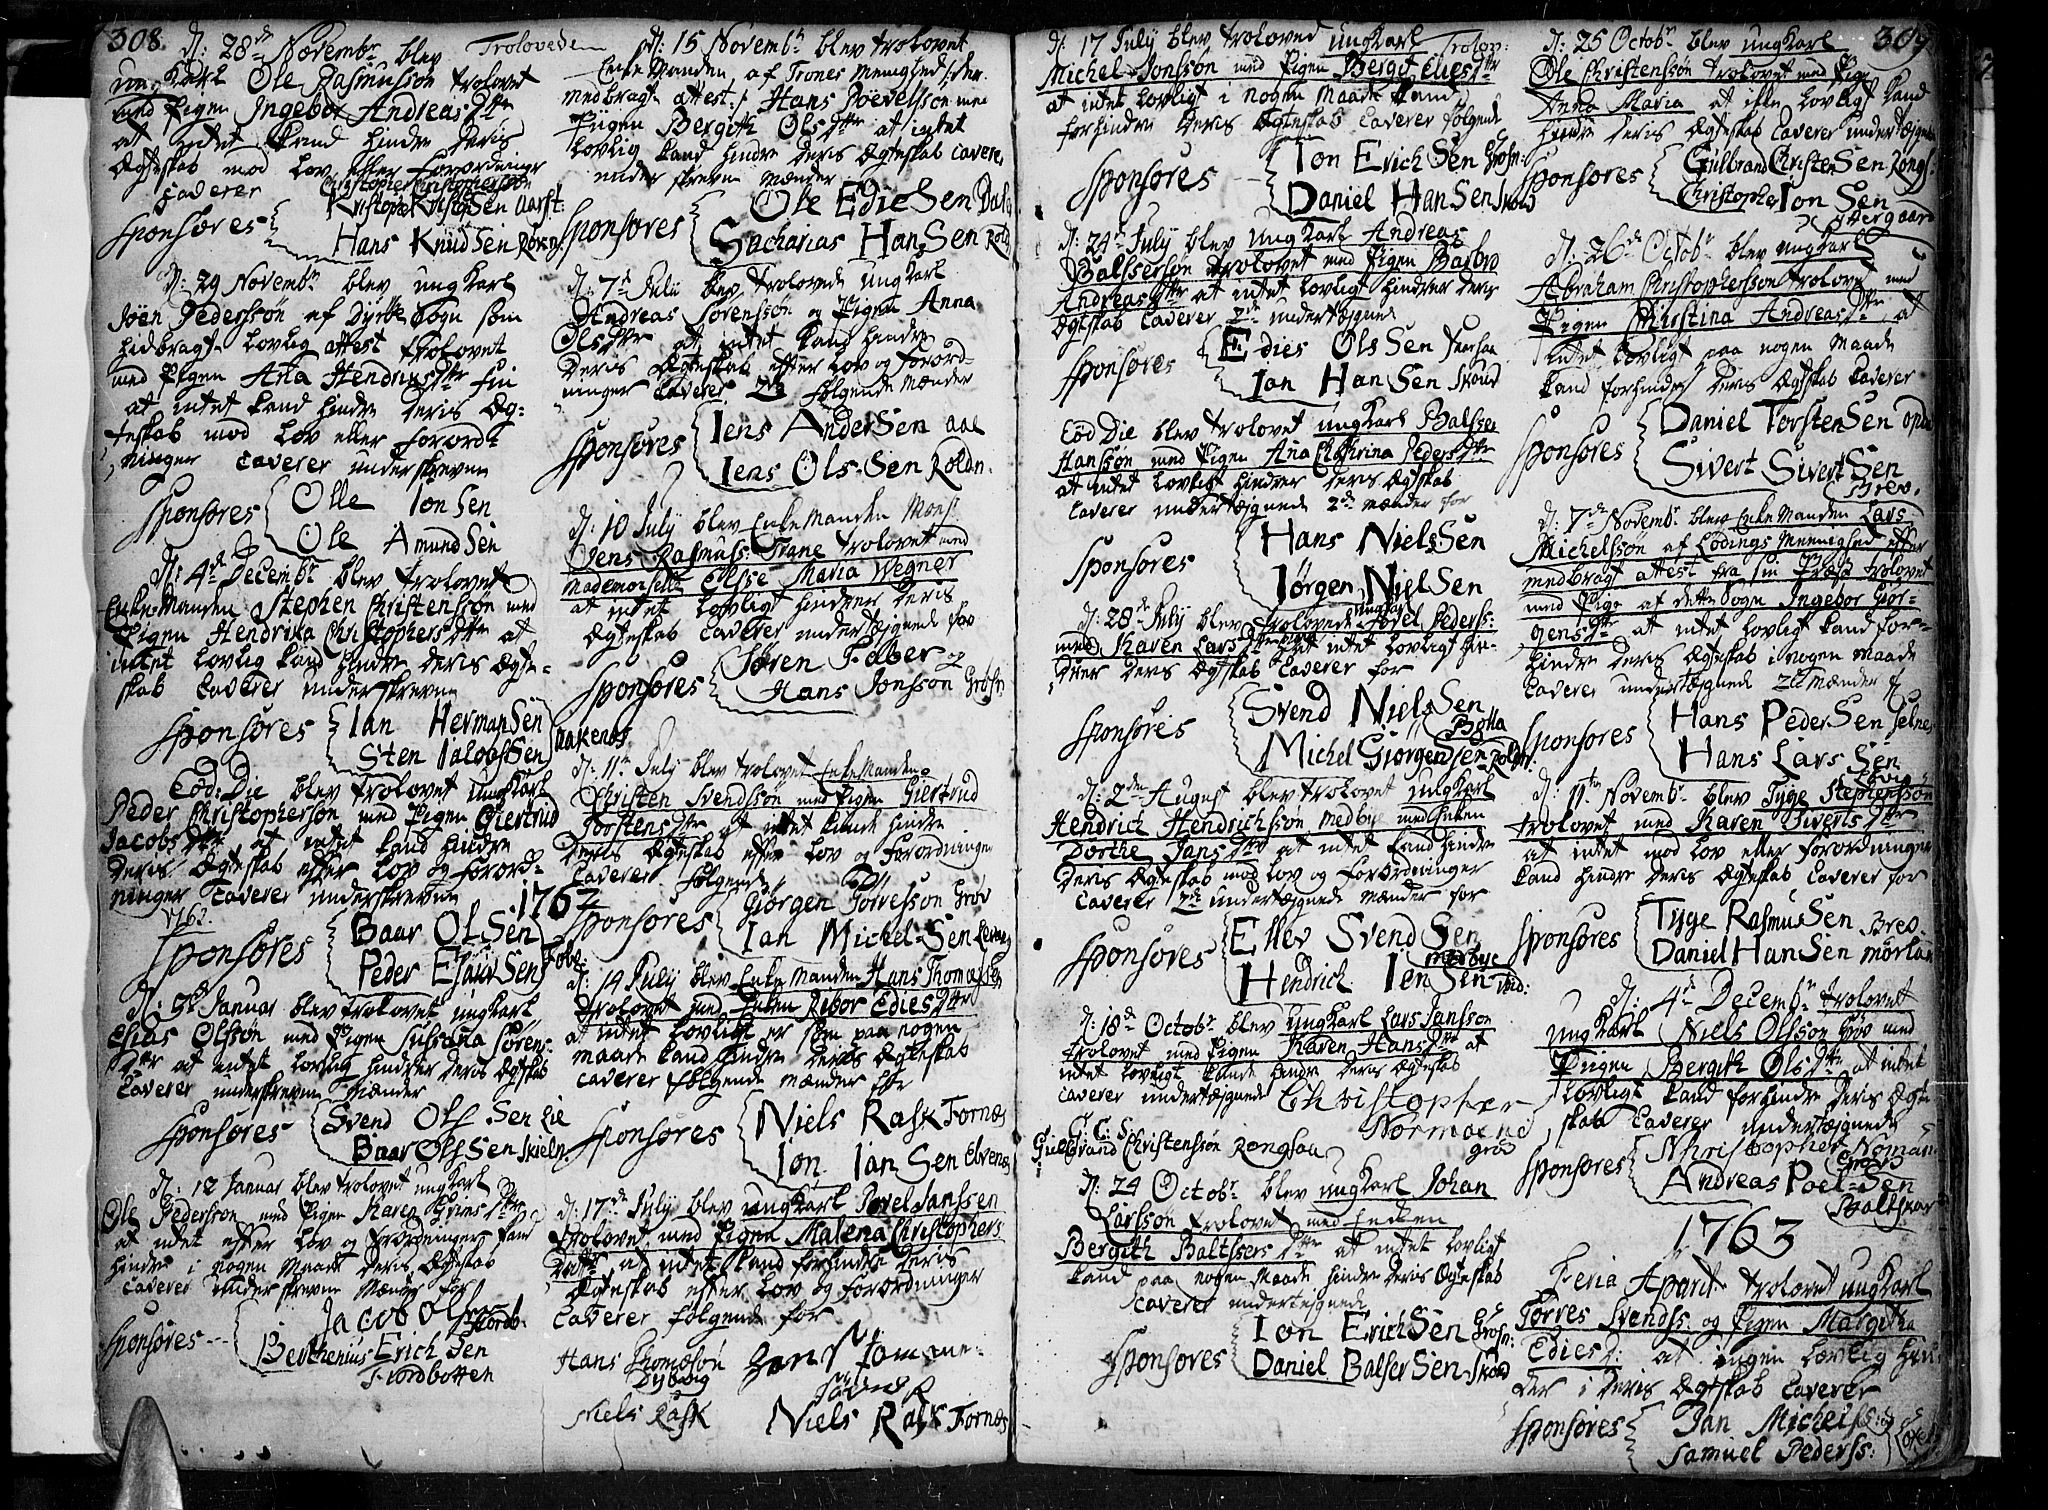 308.
Trolovede
d: 28de Novembr blev
ungKarl Ole Rasmussøn trolovet
med Pigen Ingebor Andreas Dttr
at intet kand hindre deris
Ægteskab mod Lov eller Forordninger
Caverer
Christopher Christophersøn
Sponsores Kristopr KristofSen Aarst:
Hans KnudSen Røken
d: 29 Novembr blev ungKarl
Joen Pedersøn af Dyrøe Sogn som
hidbragte lovlig attest trolovet
med Pigen Ana Hendrics Dttr
at intet kand hindre deris Æg-
teskab mod Lov eller Forord-
ninger Caverer underskrevne
Sponsores Olle IonSen
Ole AmundSen
d: 4de Decembr blev trolovet
Enke Manden Stephen Christenssøn med
Pigen Hendrika Christophers Dttr at
intet lovlig kand hindre deris Ægte-
skab Caverer underskrevne
Sponsores Ian HermanSen
Sten IalobsSen Aakenes
Eod: Die blev trolovet ungKarl
Peder Christophersøn med Pigen Giertrud
Jacobs Dttr at intet kand hindre
deris Ægteskab effter Lov og Forord-
ninger Caverer underskrevne
1762.
Sponsores Baar OlSen
Peder EliasSen
d: Januar blev trolovet ungkarl
Elias Olssøn med Pigen Susana Sørens
Dttr at intet lovlig hindrer deris Ægteskab
Caverer underskrevne Mænder
Sponsores Svend Ols Sen Lie
Baar OlsSen Skieln.
d: 12 Januar blev trolovet ungKarl
Ole Pederssøn med Pigen Karen Grims Dttr
at intet effter Lov og Forordninger kand
hindre i nogen Maade deris Ægteskab
Caverer underskrevne Mænder for
Sponsores Jacob Ols
Berthenius Erich Sen
Fiordbotten
d: 15 Novembr blev trolovet
Enke Manden af Trones Menighed /: der
medbragte attest :/ Hans Povelssøn med
Pigen Bergith Ols Dttr at intet
lovlig kand hindre deris Ægteskab Caverer
under skrevne Mænder
Sponsores Ole EdieSen
Sacharias HanSen
d: 7de Julii blev trolovede ungKarl
Andreas Sørenssøn og Pigen Anna
Ols Dttr at intet kand hindre
deris Ægteskab effter Lov og Forord-
ninger Caverer 2de følgende Mænder
Sponsores Iens AnderSen Aae
Iens OlsSen Roldn.
d: 10 July blev Enke Manden Monsr
Jens Rasmuss: Trane trolovet med
Mademoiselle Elsse Maria Wegner
at intet lovligt hindrer deris
Ægteskab Caverer undertægnede for
Sponsores Søren Faber og
Hans Jonssøn Grosn
d: 11te July blev trolovet Enke Manden
Christen Svendssøn med Pigen Giertrud
Torstens Dttr at intet kand hindre
deris Ægteskab effter Lov og Forordninger
Caverer følgende
1762
Sponsores Giørgen Torressøn Grøv
Ian MichelSen
d: 14 July blev Enke Manden Hans Thomæsøn
trolovet med Enken Ribor Edies Dttr
at intet lovligt er som paa nogen
maade kand hindre deris Ægteskab
Caverer følgende Mænder for
Sponsores Niels Rask Fornes
Ion IanSen Elvenes
d: 17de July blev ungKarl Povel Janssen
trolovet med Pigen Malena Christophers
Datter at intet kand forhindre deris
Ægteskab effter Lov og Forordninger
Caverer følgende for
Hans Thomæsøn
Niels Rask
Niels Rask Fornes
309
Trolov:
d: 17 July blev troloved ungKarl
Michel Jonssøn med Pigen Bergit Elies Dttr
at intet lovligt i nogen Maade kand
forhindre deris Ægteskab Caverer følgende
Sponsores Ion ErichSen Grosn:
Daniel HanSen Skond
d: 24de July blev ungKarl Andreas
Balssersøn trolovet med Pigen Barbro
Andreas Dttr at intet lovligt hindrer deris
Ægteskab Caverer 2de undertægnede
Sponsores Edies OlsSen
Ian HanSen Skond
Eod Die blev trolovet ungKarl Balsser
Hanssøn med Pigen Ana Chathrina Peders Dttr
at intet lovligt hindrer deris Ægteskab
Caverer undertægnede 2de Mænder for
Sponsores Hans NielsSen
Iørgen NielSen
d: 28de July blev trolovede ungKarl Povel Pederss:
med Karen Lars Dttr at intet lovligt hin-
drer deris Ægteskab Caverer for
Sponsores Svend NielsSen
Bolla
Michel GiørgenSen Roldn:
d: 2den August blev trolovet ungKarl
Hendrich Hendrichssøn Medbye med Enken
Dorthe Jans Dttr at intet kand hindre
deris Ægteskab mod Lov og Forordninger
Caverer 2de undertægnede Mænder for
Sponsores Ellev SvendSen
Medbye
Hendrich IenSen
d: 18de Octobr blev ungKarl Lars Janssøn
trolovet med Pigen Karen Hans Dttr at
intet lovligt kand hindre deris Ægteskab
Caverer undertægnede Christopher
Normand
Grøv
G: C: S:
Gulbrand Christenssøn Rongsaa
d: 24 Octobr blev ungKarl Johan
Larssøn trolovet med Enken
Bergith Baltssers Dttr at intet lovligt
kand paa nogen Maade hindre deris Ægteskab
Caverer undertegnede
Sponsores Ion ErichSen Grosn:
Daniel BalserSen Skond
d: 25 Octobr blev ungKarl
Ole Christenssøn trolovet med Pige
Anna Maria at ikke lovligt kand
hindre deris Ægteskab Caverer undertægnede
Sponsores Gulbrand ChristenSen Rongs:
Christopher IonSen
d: 26de Octobr blev ungKarl
Abraham Christopherssøn trolovet med
Pigen Christina Andreas Dttr at
intet lovligt paa nogen Maade
kand forhindre deris Ægteskab Caverer
Sponsores Daniel TorstenSen
Sivert SivertSen
Brev.
d: 7de Novembr blev Enke Manden Lars
Michelssøn af Lødings Menighed effter
medbragt attest fra sin Præst trolovet
med Pige af dette Sogn Ingebor Giør-
gens Dttr at intet lovligt kand for-
hindre deris Ægteskab i nogen Maade
Caverer undertægnede 2de Mænder
Sponsores Hans PederSen Selnes
Hans LarsSen
d: 11te Novembr blev Tyge Stephenssøn
trolovet med Karen Siverts Dttr
at intet mod Lov eller Forordninger
kand hindre deris Ægteskab Caverer for
Sponsores Tyge RasmusSen Brev.
Daniel HanSen
d: 4de Decembr trolovet
ungKarl Niels Olssøn Grøv med
Pigen Bergith Ols Dttr at intet
lovligt kand forhindre deris Ægte
skab Caverer undertægnede
Sponsores Khristopher Noman
Grøv
Andreas PoelSen
Baltskar
1763
Feria Aparit trolovet ungKarl
Torres Svendss: og Pigen Margitha
Edies D: at ingen lovlig hin-
der i deris Ægteskab Caverer
Sponsores Ian Michelss:
Samuel Pederss: